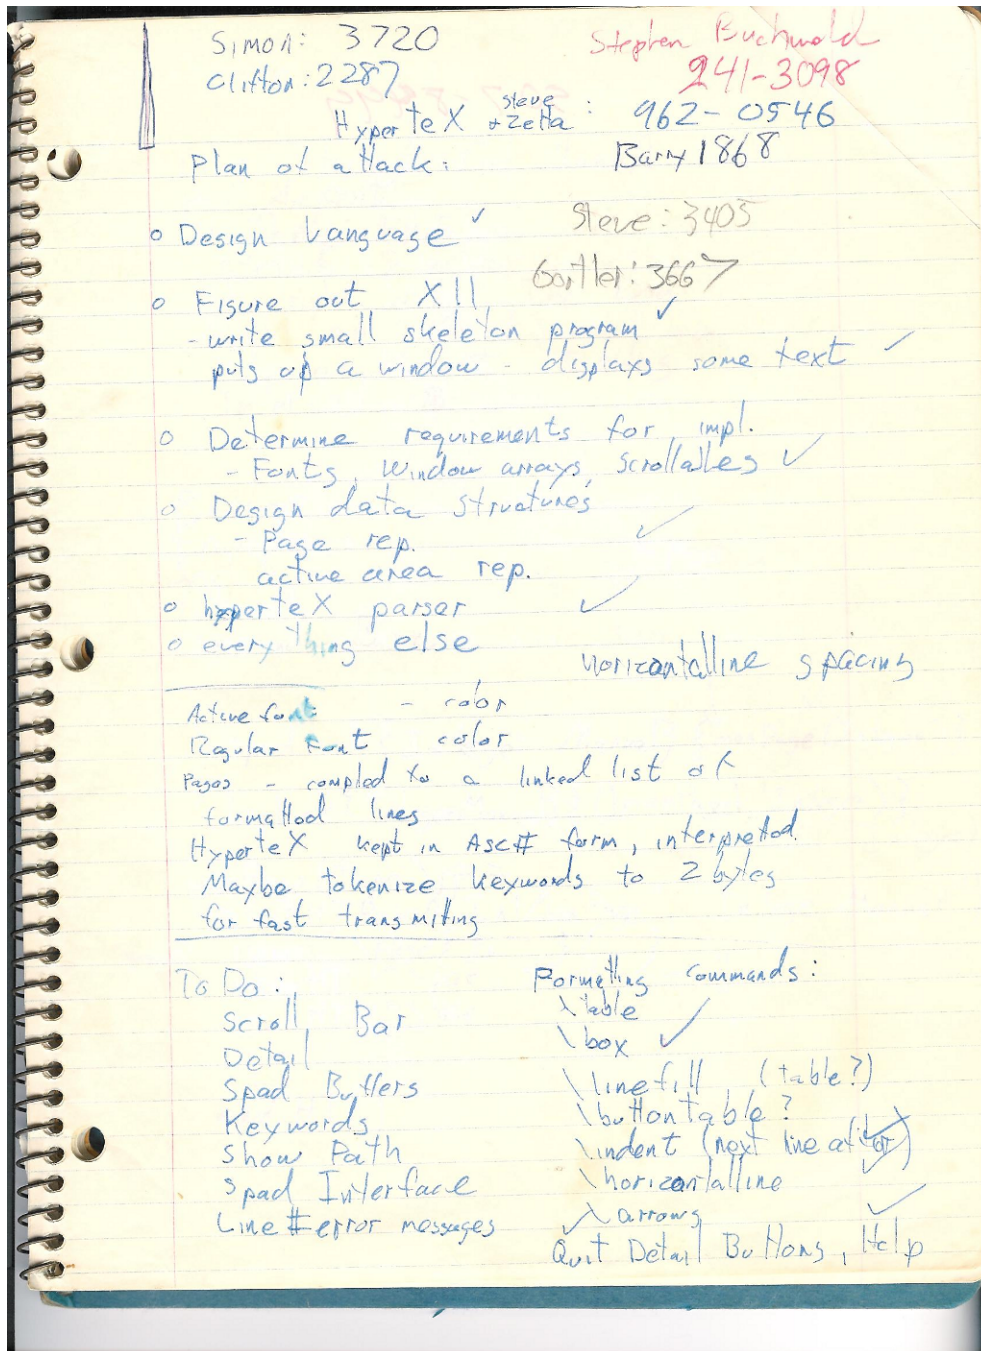 Simon: 3720
Stephen Buchwald
Clifton: 2287
241-3098
HyperteX steve + Zelta : 962-0546
Plan of attack:
Barry 1868
o Design Language ✓
Steve: 3405
Gortler: 3667
o Figure out X11
- write small skeleton program ✓
puts up a window - displays some text ✓
o Determine requirements for impl.
- Fonts, Window arrays, Scrollables ✓
o Design data structures
- Page rep. ✓
active area rep.
o hyperteX parser ✓
o everything else
horizontalline spacing
Active font - color
Regular Font color
Pages - compled to a linked list of
formatted lines
HyperteX kept in ASCII form, interpreted.
Maybe tokenize keywords to 2 bytes
for fast transmiting
To Do:
Scroll Bar
Detail
Spad Buffers
Keywords
Show Path
Spad Interface
Line # error messages
Formatting commands:
\table
\box ✓
\linefill (table?)
\buttontable?
\indent (next line after)
\horizontalline
\arrows
Quit Detail Buttons, Help